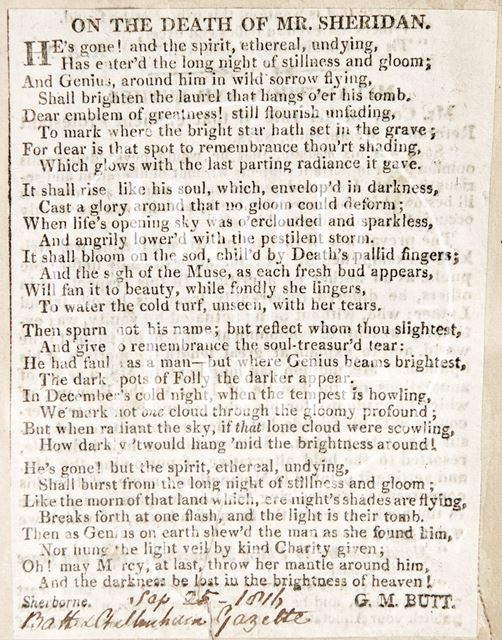 ON THE DEATH OF MR. SHERIDAN.
HE's gone! and the spirit, ethereal, undying,
Has enter'd the long night of stillness and gloom;
And Genius, around him in wild sorrow flying,
Shall brighten the laurel that hangs o'er his tomb.
Dear emblem of greatness! still flourish unfading,
To mark where the bright star hath set in the grave;
For dear is that spot to remembrance thou'rt shading,
Which glows with the last parting radiance it gave.
It shall rise, like his soul, which, envelop'd in darkness,
Cast a glory around that no gloom could deform;
When life's opening sky was o'erclouded and sparkless,
And angrily lower'd with the pestilent storm.
It shall bloom on the sod, chill'd by Death's pallid fingers;
And the sigh of the Muse, as each fresh bud appears,
Will fan it to beauty, while fondly she lingers,
To water the cold turf, unseen, with her tears.
Then spurn not his name; but reflect whom thou slightest,
And give to remembrance the soul-treasur'd tear:
He had faults as a man—but where Genius beams brightest,
The dark spots of Folly the darker appear.
In December's cold night, when the tempest is howling,
We mark not one cloud through the gloomy profound;
But when radiant the sky, if that lone cloud were scowling,
How darkly 'twould hang 'mid the brightness around!
He's gone! but the spirit, ethereal, undying,
Shall burst from the long night of stillness and gloom;
Like the morn of that land which, ere night's shades are flying,
Breaks forth at one flash, and the light is their tomb.
Then as Genius on earth shew'd the man as she found him,
Nor hung the light veil by kind Charity given;
Oh! may Mercy, at last, throw her mantle around him,
And the darkness be lost in the brightness of heaven!
Sherborne. G. M. BUTT.
Sep 25 - 1816
Cheltenham Gazette